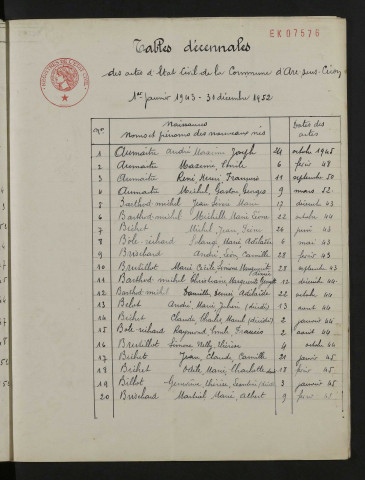 EK07576
Tables décennales
des actes d'Etat Civil de la Commune d'Arc-sous-Cicon
1er janvier 1943 - 31 décembre 1952
Nos Naissances Dates des
Noms et prénoms des nouveaux-nés actes
1 Aumaitre André Maxime Joseph 24 octobre 1945
2 Aumaitre Maxime 6 48
3 Aumaitre René Henri François 11 septembre 50
4 Aumaitre Michel, Gaston, Georges 9 mars 52
5 Barthod-michel Jean 17 décembre 43
6 Barthod-michel Michelle Marie 22 octobre 44
7 Belhet Michel, Jean, 24 43
8 Bôle-richard Solange, Marie, Adelaïde 6 mai 43
9 Brischard André, Léon, Camille 28 43
10 Brutillot Marie Cécile, Simone Marguerite 28 septembre 43
11 Barthod michel Christiane Marguerite 12 décembre 44
12 Barthod-michel Danielle Denise Adelaïde 22 octobre 44
13 André, Marie, (décédé) 13 août 44
14 Claude Charles 2 janvier 44
15 Bôle-richard Raymond Emile Francis 2 août 44
16 Brutillot Simone Nelly Thérèse 4 octobre 44
17 Jean, Claude, Camille 21 janvier 45
18 Odile, Marie, Charlotte 18 45
19 Billot Geneviève, Thérèse, 3 janvier 45
20 Brischard Martial Marie Albert 9